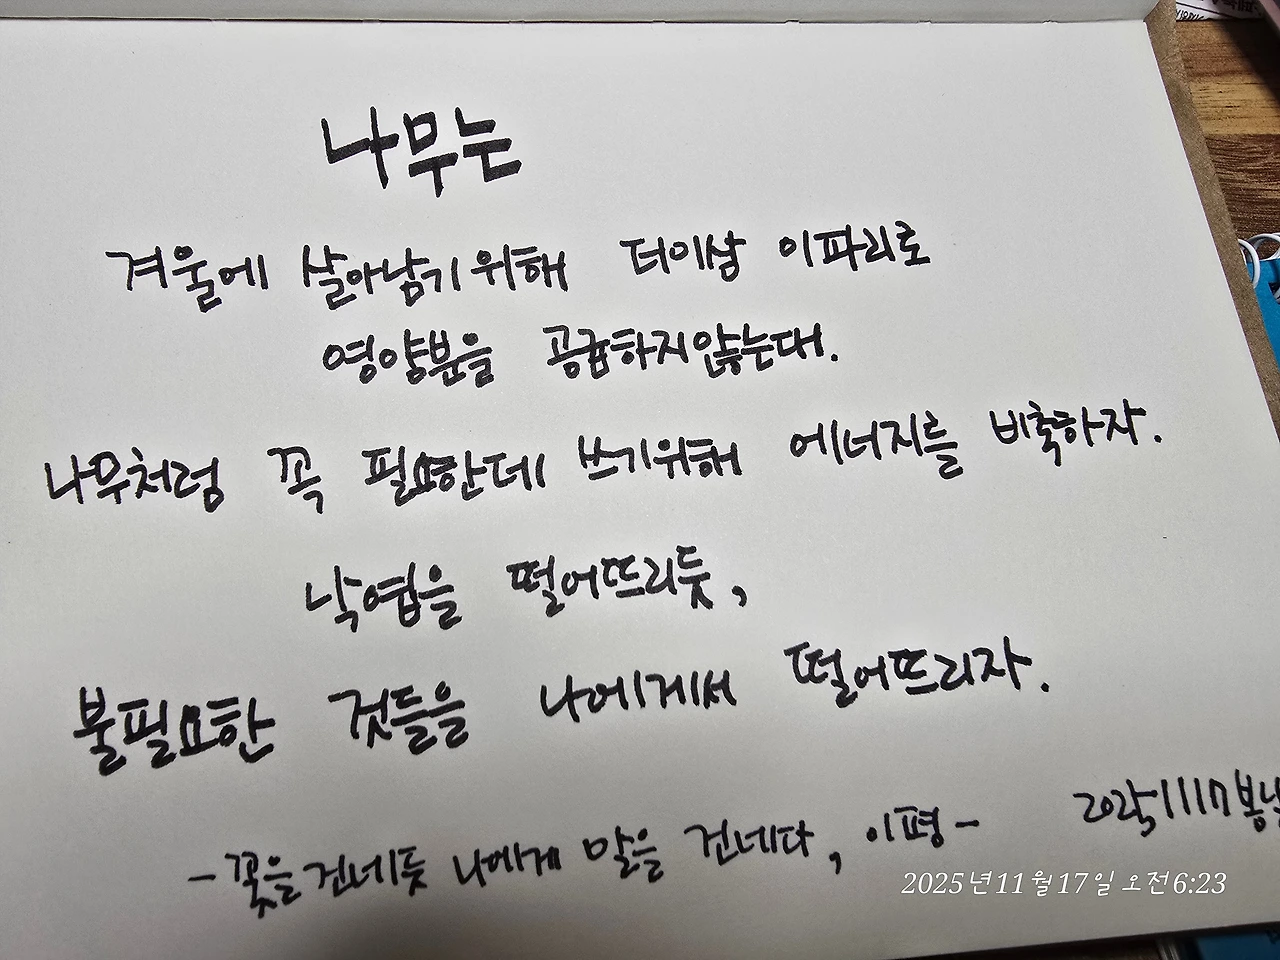 나무는
겨울에 살아남기위해 더이상 이파리로
영양분을 공급하지않는대.
나무처럼 꼭 필요한데 쓰기위해 에너지를 비축하자.
낙엽을 떨어뜨리듯,
불필요한 것들을 나에게서 떨어뜨리자.
-꽃을건네듯 나에게 말을 건네다, 이평-
2025년11월17일 오전6:23